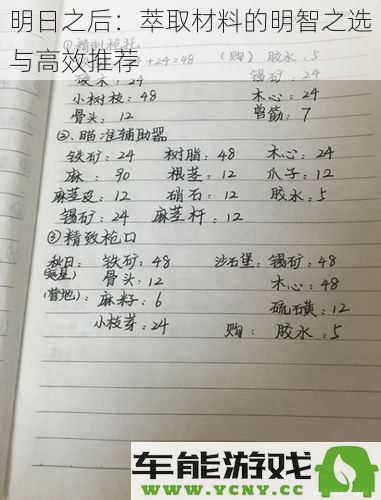 明日之后：萃取材料的明智之选
与高效推荐
24=48 (购) 胶水：5
硬木： 锡矿：24
小树枝：48 木心：24
骨头：12 兽筋：7
②瞄准辅助器
铁矿：24 树脂：48 木心：24
麻：90 根茎：12 爪子：12
麻茎皮：12 硝石：12 胶水：5
锡矿：24 麻茎杆：12
③精致枪口
秋日： 铁矿：48 沙石堡：锡矿：48
骨头：12 木心：48
(营地)：麻籽：6 硫磺：12
小枝芽：24 购：胶水：5
车能游戏
WWW.YCNY.CC